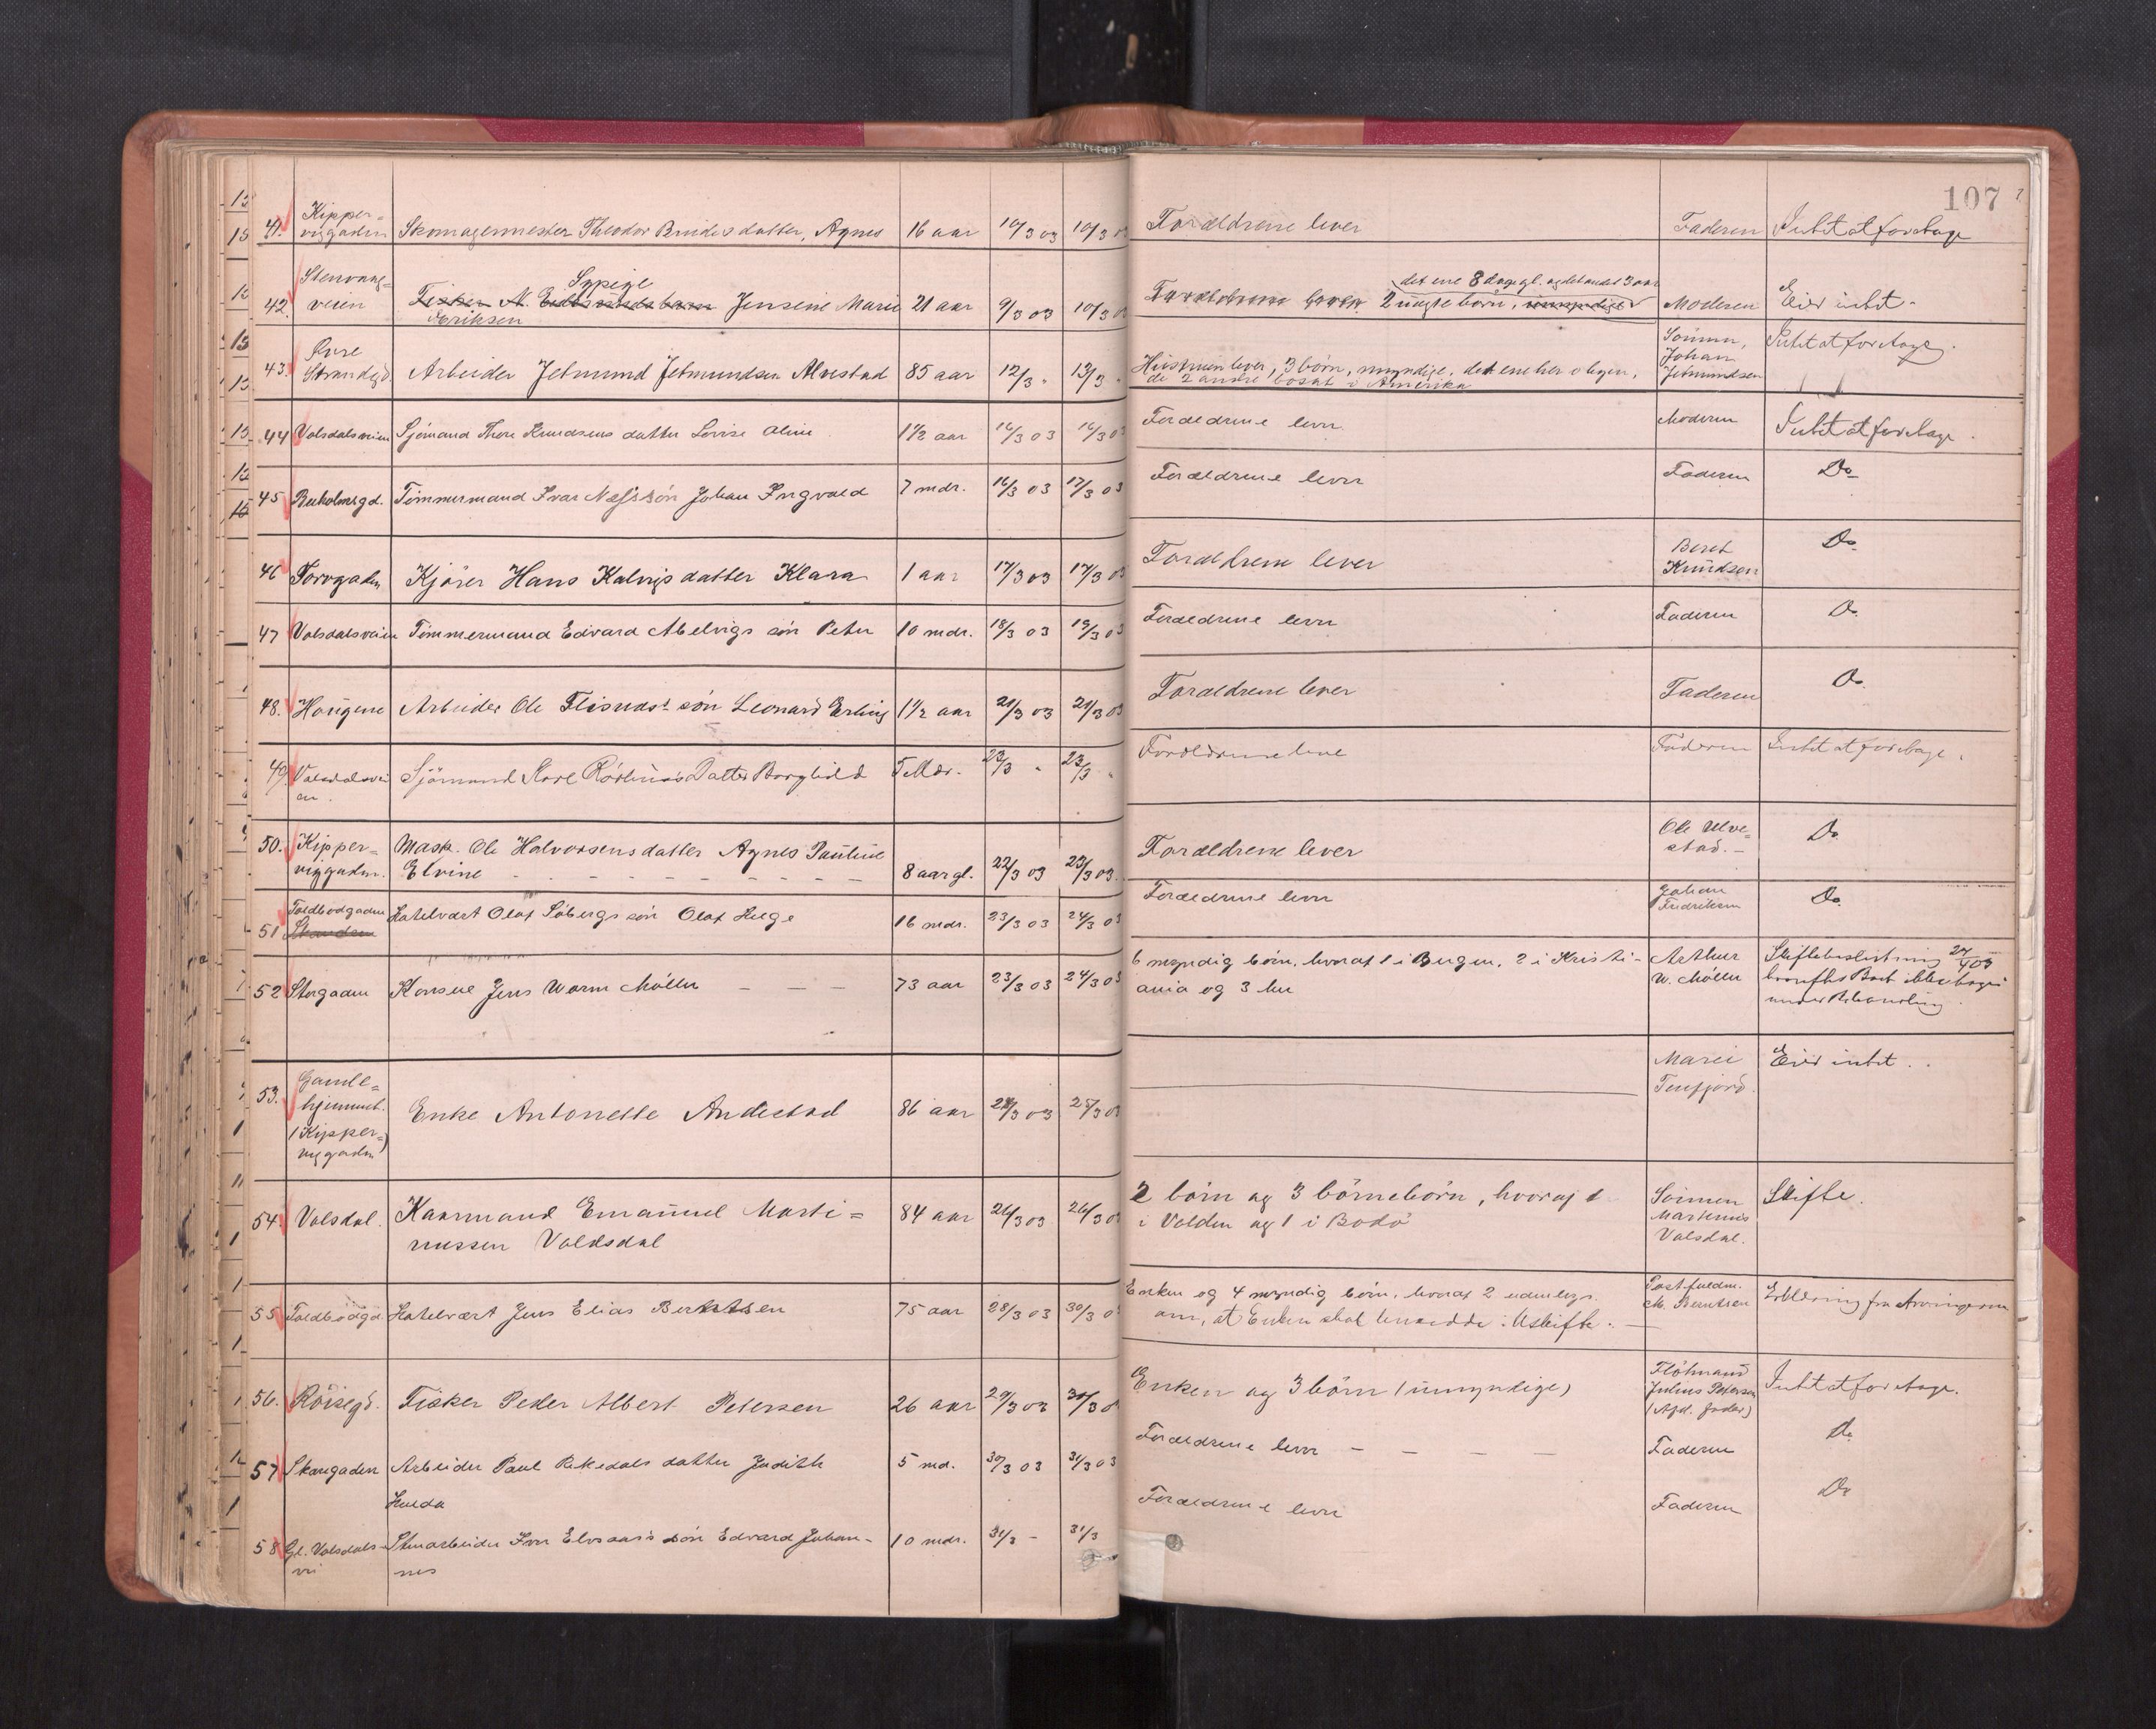 107
41. Kipper=
viggaden Skomagermester Theodor Bruidis datter, Agnes 16 aar 10/3 03 10/3 03 Forældrene lever Faderen Intet at foretage
42. Stenvaag=
veien Sypige
Fisker A. Jensine Marie 21 aar 9/3 03 10/3 03 det ene 8 dage gl. og det andet 3 aar
Eriksen Forældrene lever. 2 uægte børn, umyndige Moderen Eier intet.
43. Øvre
Strandgd. Arbeider Jetmund Jetmundsen Alvestad 85 aar 12/3 " 13/3 " Hustruen lever, 3 børn, myndige, det ene her i byen,
de 2 andre bosat i Amerika Sønnen,
Johan
Jetmundsen Intet at foretage.
44 Volsdalsveien Sjømand Thore Knudsens datter Lovise Oline 1 1/2 aar 16/3 03 16/3 03 Forældrene lever Moderen Intet at foretage.
45 Buholmsgd. Tømmermand Ivar Næss søn Johan Ingvald 7 mdr. 16/3 03 17/3 03 Forældrene lever Faderen Do
46 Torvgaden Kjører Hans Kalvigs datter Klara 1 aar 17/3 03 17/3 03 Forældrene lever Beret
Knudsen Do.
47 Volsdalsveien Tømmermand Edvard Melvigs søn Peter 10 mdr. 18/3 03 19/3 03 Forældrene lever Faderen Do.
48. Haugene Arbeider Ole Flisnds. søn Leonard Erling 1 1/2 aar 21/3 03 21/3 03 Forældrene lever Faderen Do.
49. Volsdalsvei
en. Sjømand Karl Datter Borghild 5 Mdr. 23/3 " 23/3 " Forældrene leve Faderen Intet at foretage.
50. Kipper=
viggaden. Mask. Ole Halvorsens datter Agnes Pauline
Elvine 8 aar gl. 22/3 03 23/3 03. Forældrene lever Ole Ulve=
stad. Do
51 Toldbodgaden
Hotelvært Olaf Søbergs søn Olaf Helge 16 mdr. 23/3 03 24/3 03 Forældrene lever Johan
Fredriksen Do.
52 Storgaden Konsul Jens Worm Møller 73 aar 23/3 03 24/3 03 6 myndig børn, hvoraf 1 i Bergen, 2 i Kristi-
ania og 3 her Arthur
W. Møller Skiftebeslutning 27/4 03
Boet ikke tages
under Behandling.
53. Gamle=
hjemmet.
(Kipper=
viggaden) Enke Antonette Andestad 86 aar 24/3 03 25/3 03 Marei
Tenfjord. Eier intet.
54. Volsdal. Kaarmand Emanuel Marti=
nussen Voldsdal 84 aar 26/3 03 26/3 03 2 børn og 3 børnebørn, hvoraf 1
i Volden og 1 i Bodø Sønnen
Martinus
Volsdal. Skifte.
55 Toldbodgd. Hotelvært Jens Elias Berntsen 75 aar 28/3 03 30/3 03 Enken og 4 myndig børn, hvoraf 2 udenbys.
om, at Enken skal hensidde i Uskifte. Postfuldm.
M. Berntsen Erklæring fra Arvingerne
56. Røisegd. Fisker Peder Albert Petersen 26 aar 29/3 03 30/3 03 Enken og 3 børn (umyndige) Fløtmand
Julius Petersen
(Afd. fader) Intet at foretage.
57 Skaregaden Arbeider Paul Rekedals datter Judith
Hulda 5 md. 30/3 03 31/3 03 Forældrene lever Faderen Do.
58 Gl. Volsdals-
vei Stenarbeider Iver Elvsaas's søn Edvard Johan-
nes 10 mdr. 31/3 - 31/3 Forældrene lever Faderen Do